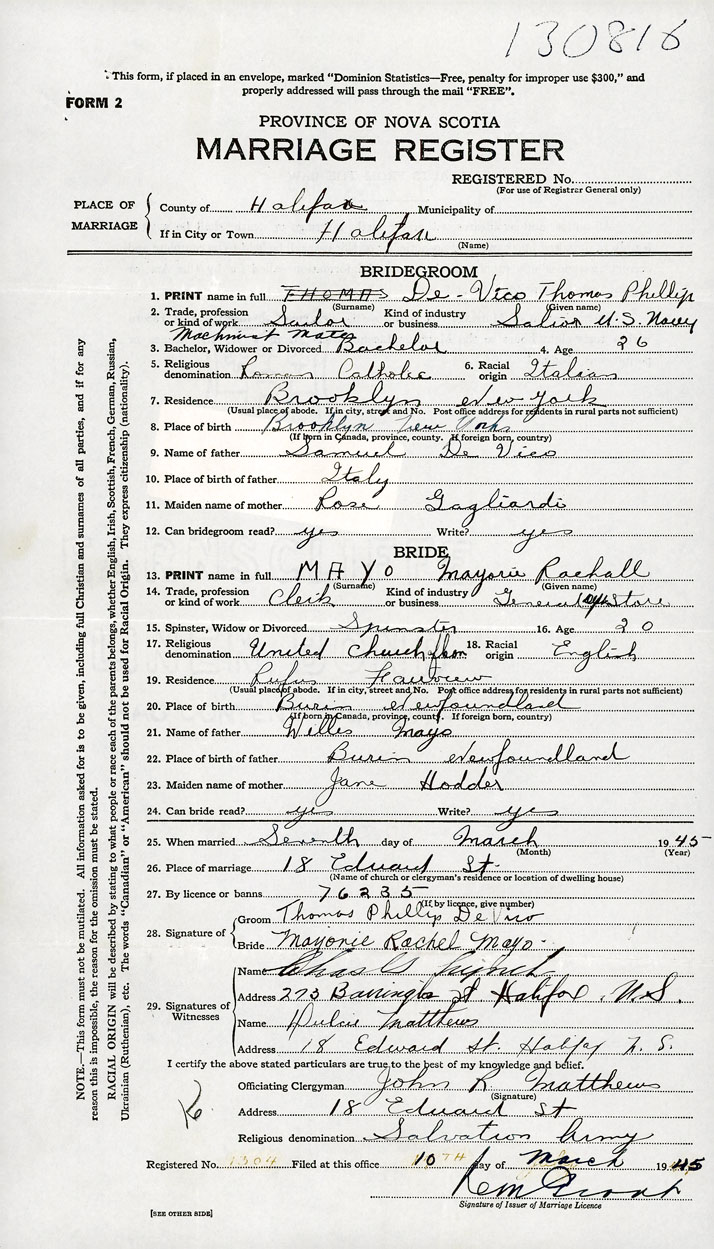 130816
This form, if placed in an envelope, marked "Dominion Statistics—Free, penalty for improper use $300," and
properly addressed will pass through the mail "FREE".
FORM 2
PROVINCE OF NOVA SCOTIA
MARRIAGE REGISTER
REGISTERED No.
(For use of Registrar General only)
PLACE OF MARRIAGE
County of Halifax Municipality of
If in City or Town Halifax
(Name)
BRIDEGROOM
1. PRINT name in full THOMAS De-Vico Thomas Phillip
(Surname) (Given name)
2. Trade, profession or kind of work Sailor Kind of industry or business Salior U.S. Navey
Machinist Mate
3. Bachelor, Widower or Divorced Bachelor 4. Age 26
5. Religious denomination Roman Catholic 6. Racial origin Italian
7. Residence Brooklyn New York
(Usual place of abode. If in city, street and No. Post office address for residents in rural parts not sufficient)
8. Place of birth Brooklyn New York
(If born in Canada, province, county. If foreign born, country)
9. Name of father Samuel De Vico
10. Place of birth of father Italy
11. Maiden name of mother Rose Gagliardi
12. Can bridegroom read? yes Write? yes
BRIDE
13. PRINT name in full MAYO Marjorie Rachall
(Surname) (Given name)
14. Trade, profession or kind of work Clerk Kind of industry or business General Store
15. Spinster, Widow or Divorced Spinster 16. Age 20
17. Religious denomination United Church 18. Racial origin English
19. Residence Rufus Fairview
(Usual place of abode. If in city, street and No. Post office address for residents in rural parts not sufficient)
20. Place of birth Burin Newfoundland
(If born in Canada, province, county. If foreign born, country)
21. Name of father Willis Mayo
22. Place of birth of father Burin Newfoundland
23. Maiden name of mother Jane Hodder
24. Can bride read? yes Write? yes
25. When married Seventh day of March 1945
(Month) (Year)
26. Place of marriage 18 Edward St.
(Name of church or clergyman's residence or location of dwelling house)
27. By licence or banns 76235
(If by licence, give number)
28. Signature of
Groom Thomas Phillip De Vico
Bride Marjorie Rachel Mayo
29. Signatures of Witnesses
Name Chas Lynch
Address 273 Barrington St Halifax. N.S.
Name Matthews
Address 18 Edward St. Halifax N.S.
I certify the above stated particulars are true to the best of my knowledge and belief.
Officiating Clergyman John R. Matthews
(Signature)
Address 18 Edward St
Religious denomination Salvation Army
Registered No. 1304 Filed at this office 10TH day of March 1945
Signature of Issuer of Marriage Licence
[SEE OTHER SIDE]
NOTE.—This form must not be mutilated. All information asked for is to be given, including full Christian and surnames of all parties, and if for any
reason this is impossible, the reason for the omission must be stated.
RACIAL ORIGIN will be described by stating to what people or race each of the parents belongs, whether English, Irish, Scottish, French, German, Russian,
Ukrainian (Ruthenian), etc. The words "Canadian" or "American" should not be used for Racial Origin. They express citizenship (nationality).